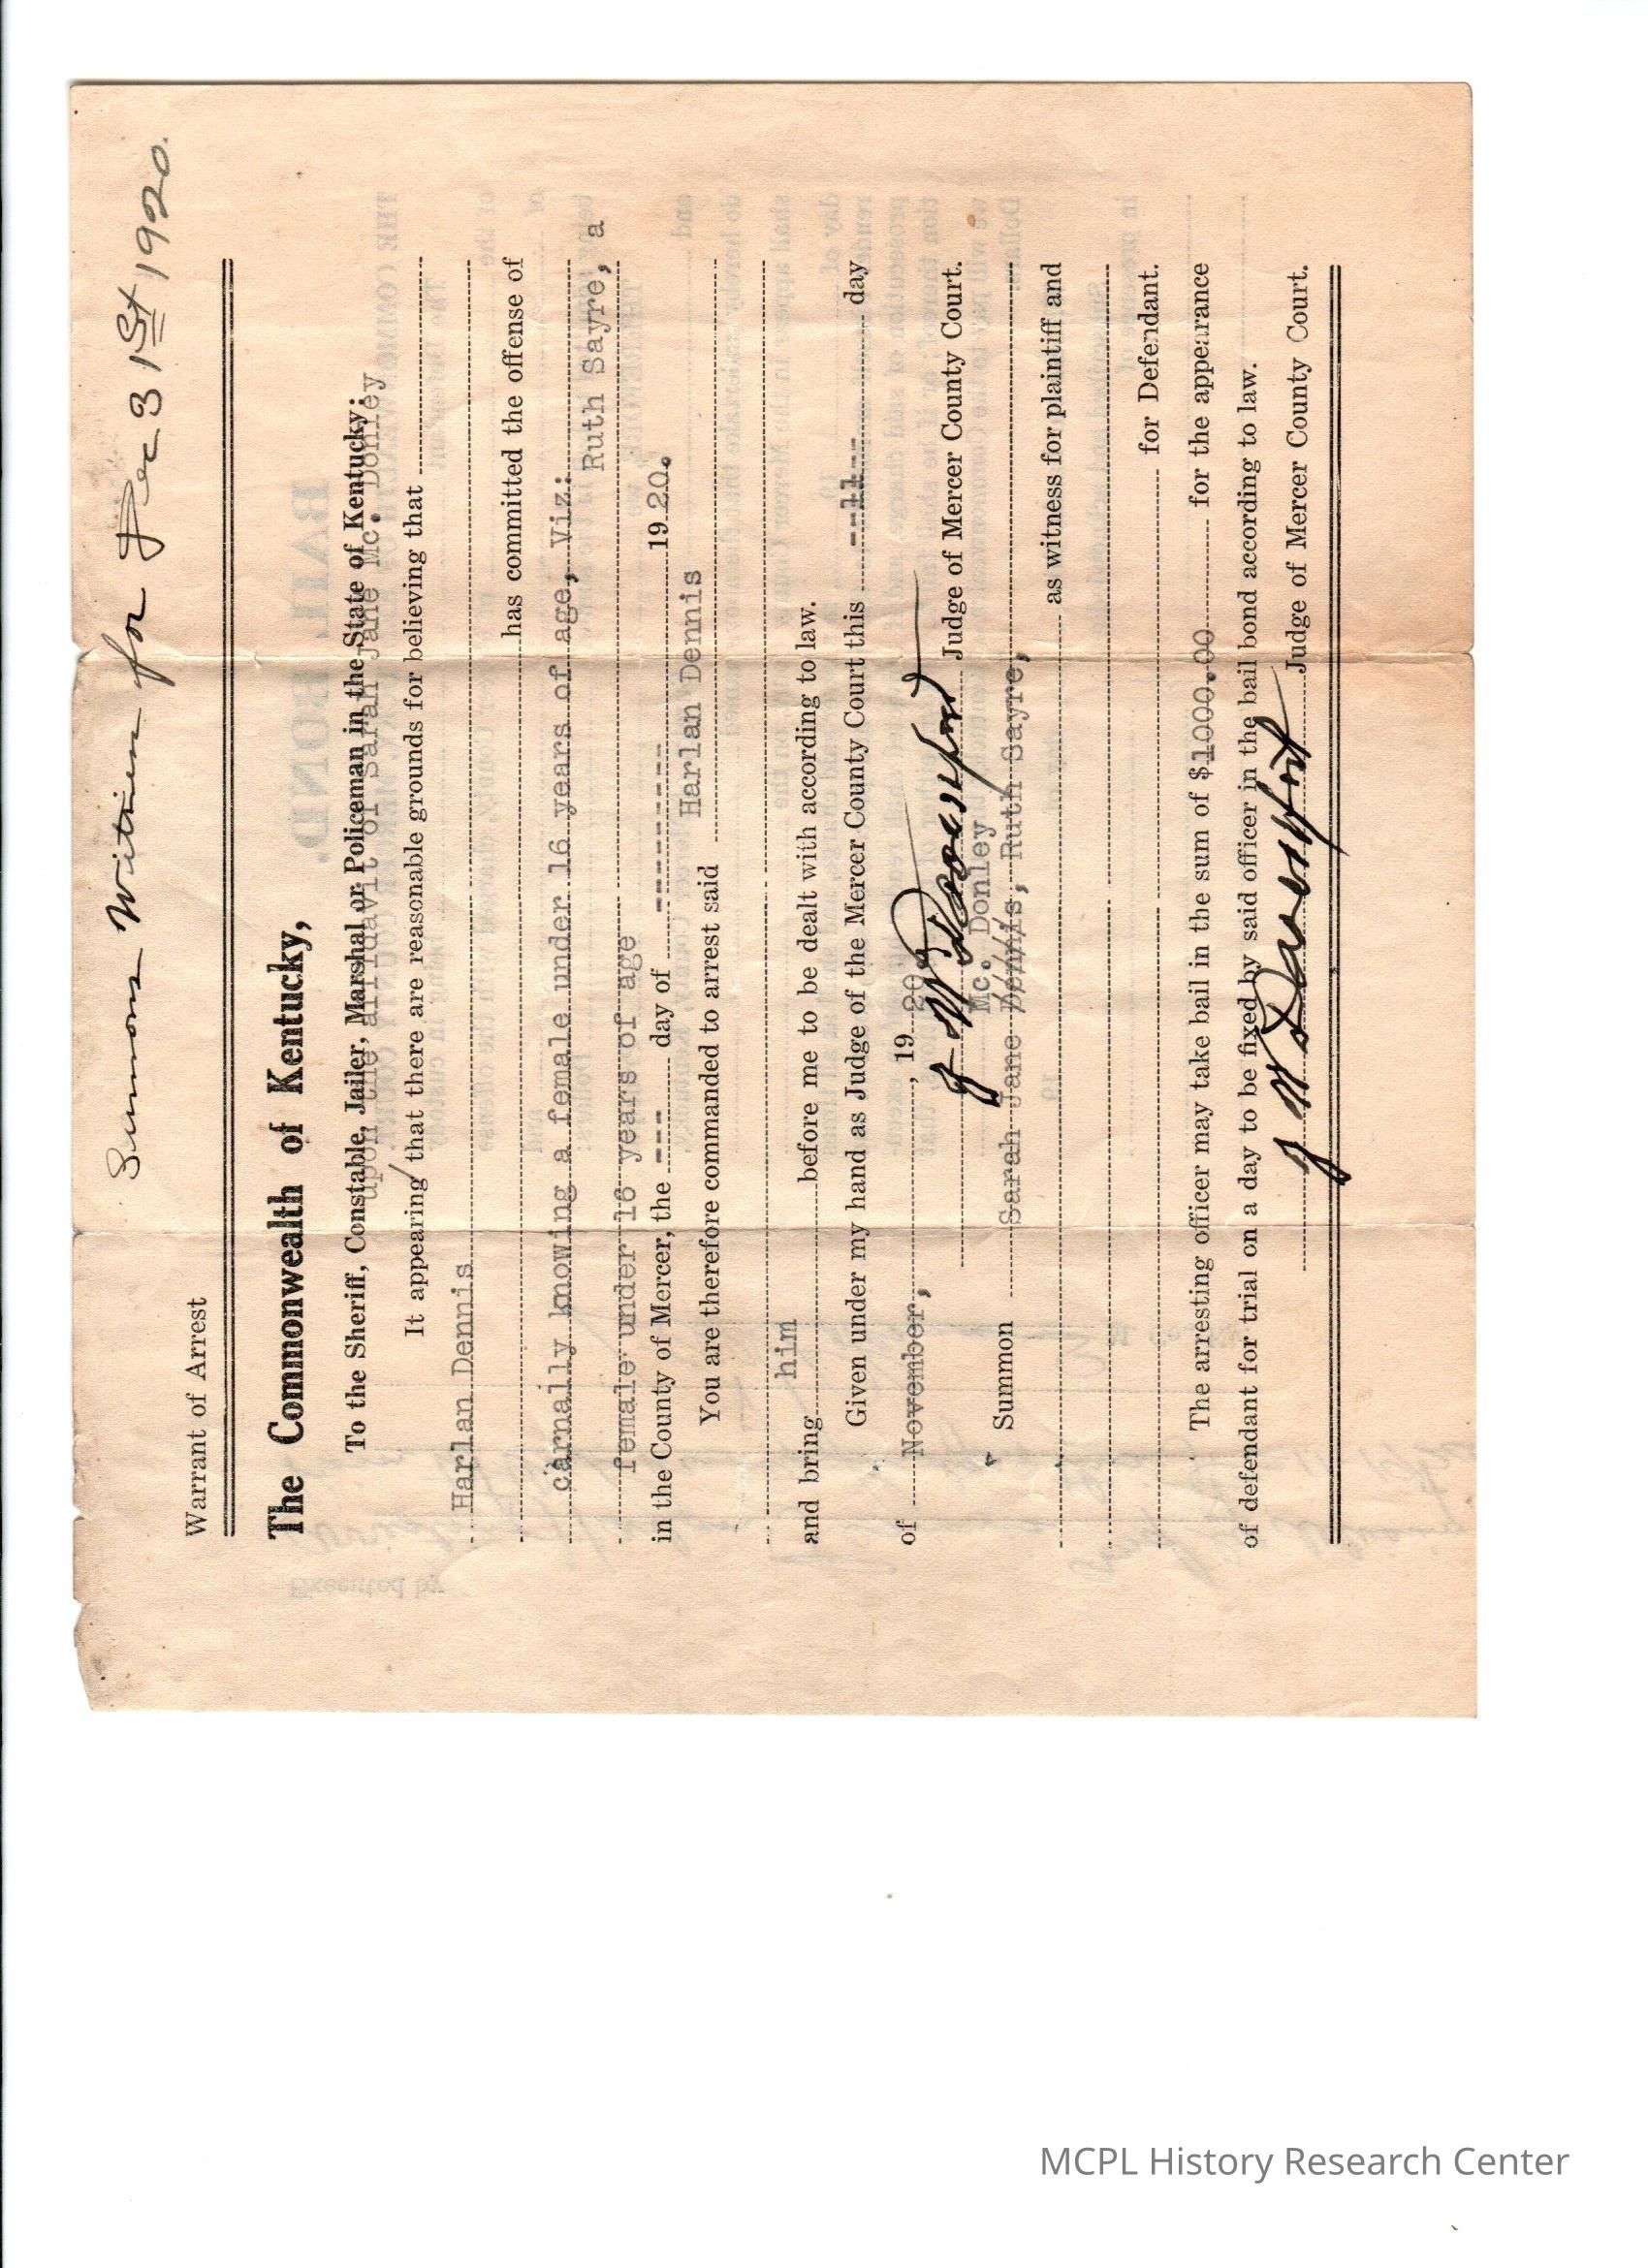 Summons Witness for Dec 31st 1920.
Warrant of Arrest
The Commonwealth of Kentucky,
To the Sheriff, Constable, Jailer, Marshal or Policeman in the State of Kentucky:
upon the affidavit of Sarah Jane Mc. Donley
It appearing / that there are reasonable grounds for believing that
Harlan Dennis
has committed the offense of
carnally knowing a female under 16 years of age, Viz:
Ruth Sayre, a
female under 16 years of age
in the County of Mercer, the --- day of --------- 1920.
You are therefore commanded to arrest said Harlan Dennis
and bring him before me to be dealt with according to law.
Given under my hand as Judge of the Mercer County Court this --11-- day
of November, , 19 20.
Judge of Mercer County Court.
Mc. Donley
Summon Sarah Jane Dennis, Ruth Sayre,
as witness for plaintiff and
for Defendant.
The arresting officer may take bail in the sum of $1000.00 for the appearance
of defendant for trial on a day to be fixed by said officer in the bail bond according to law.
Judge of Mercer County Court.
MCPL History Research Center